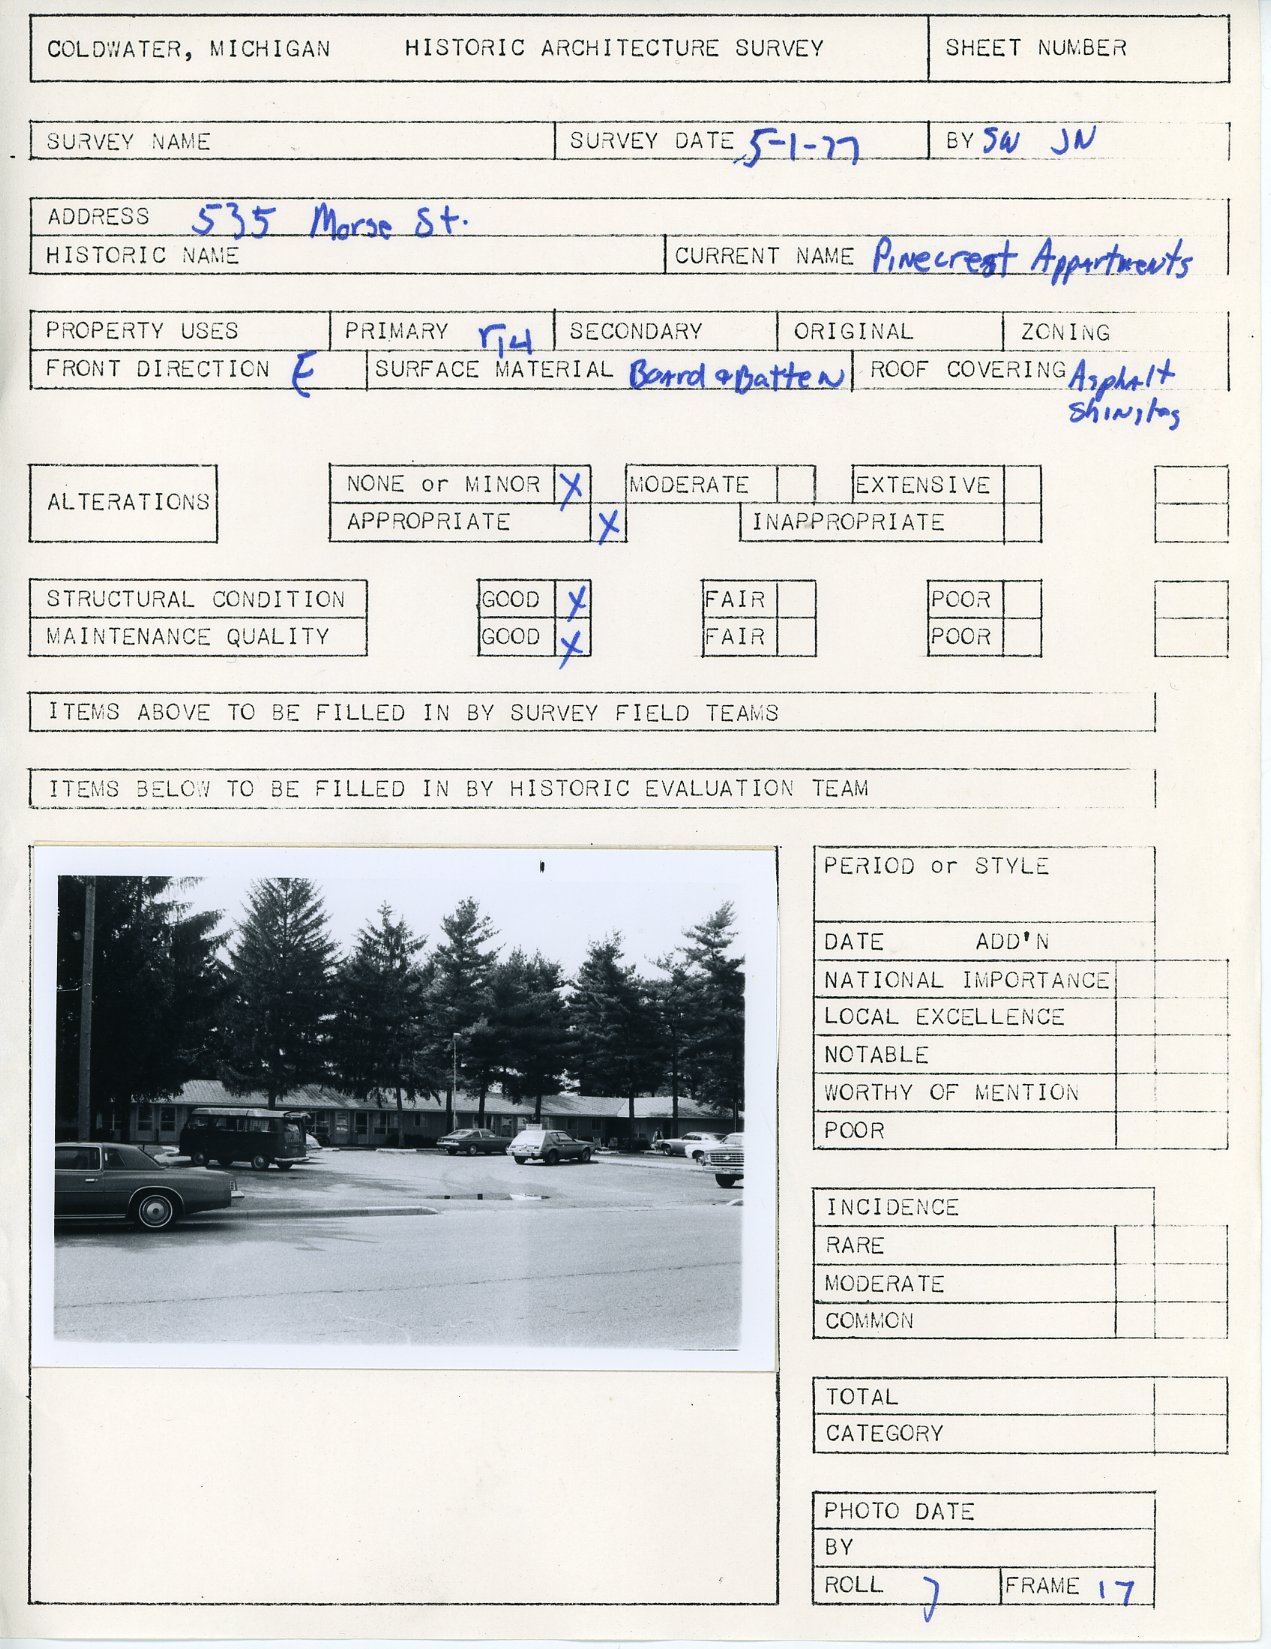 COLDWATER, MICHIGAN HISTORIC ARCHITECTURE SURVEY SHEET NUMBER
SURVEY NAME SURVEY DATE 5-1-77 BY SW JN
ADDRESS 535 Morse St.
HISTORIC NAME CURRENT NAME Pinecrest Appartments
PROPERTY USES PRIMARY SECONDARY ORIGINAL ZONING
FRONT DIRECTION E SURFACE MATERIAL Board & Batten ROOF COVERING Asphalt
ALTERATIONS NONE or MINOR X MODERATE EXTENSIVE
APPROPRIATE X INAPPROPRIATE
STRUCTURAL CONDITION GOOD X FAIR POOR
MAINTENANCE QUALITY GOOD X FAIR POOR
ITEMS ABOVE TO BE FILLED IN BY SURVEY FIELD TEAMS
ITEMS BELOW TO BE FILLED IN BY HISTORIC EVALUATION TEAM
PERIOD or STYLE
DATE ADD'N
NATIONAL IMPORTANCE
LOCAL EXCELLENCE
NOTABLE
WORTHY OF MENTION
POOR
INCIDENCE
RARE
MODERATE
COMMON
TOTAL
CATEGORY
PHOTO DATE
BY
ROLL 7 FRAME 17